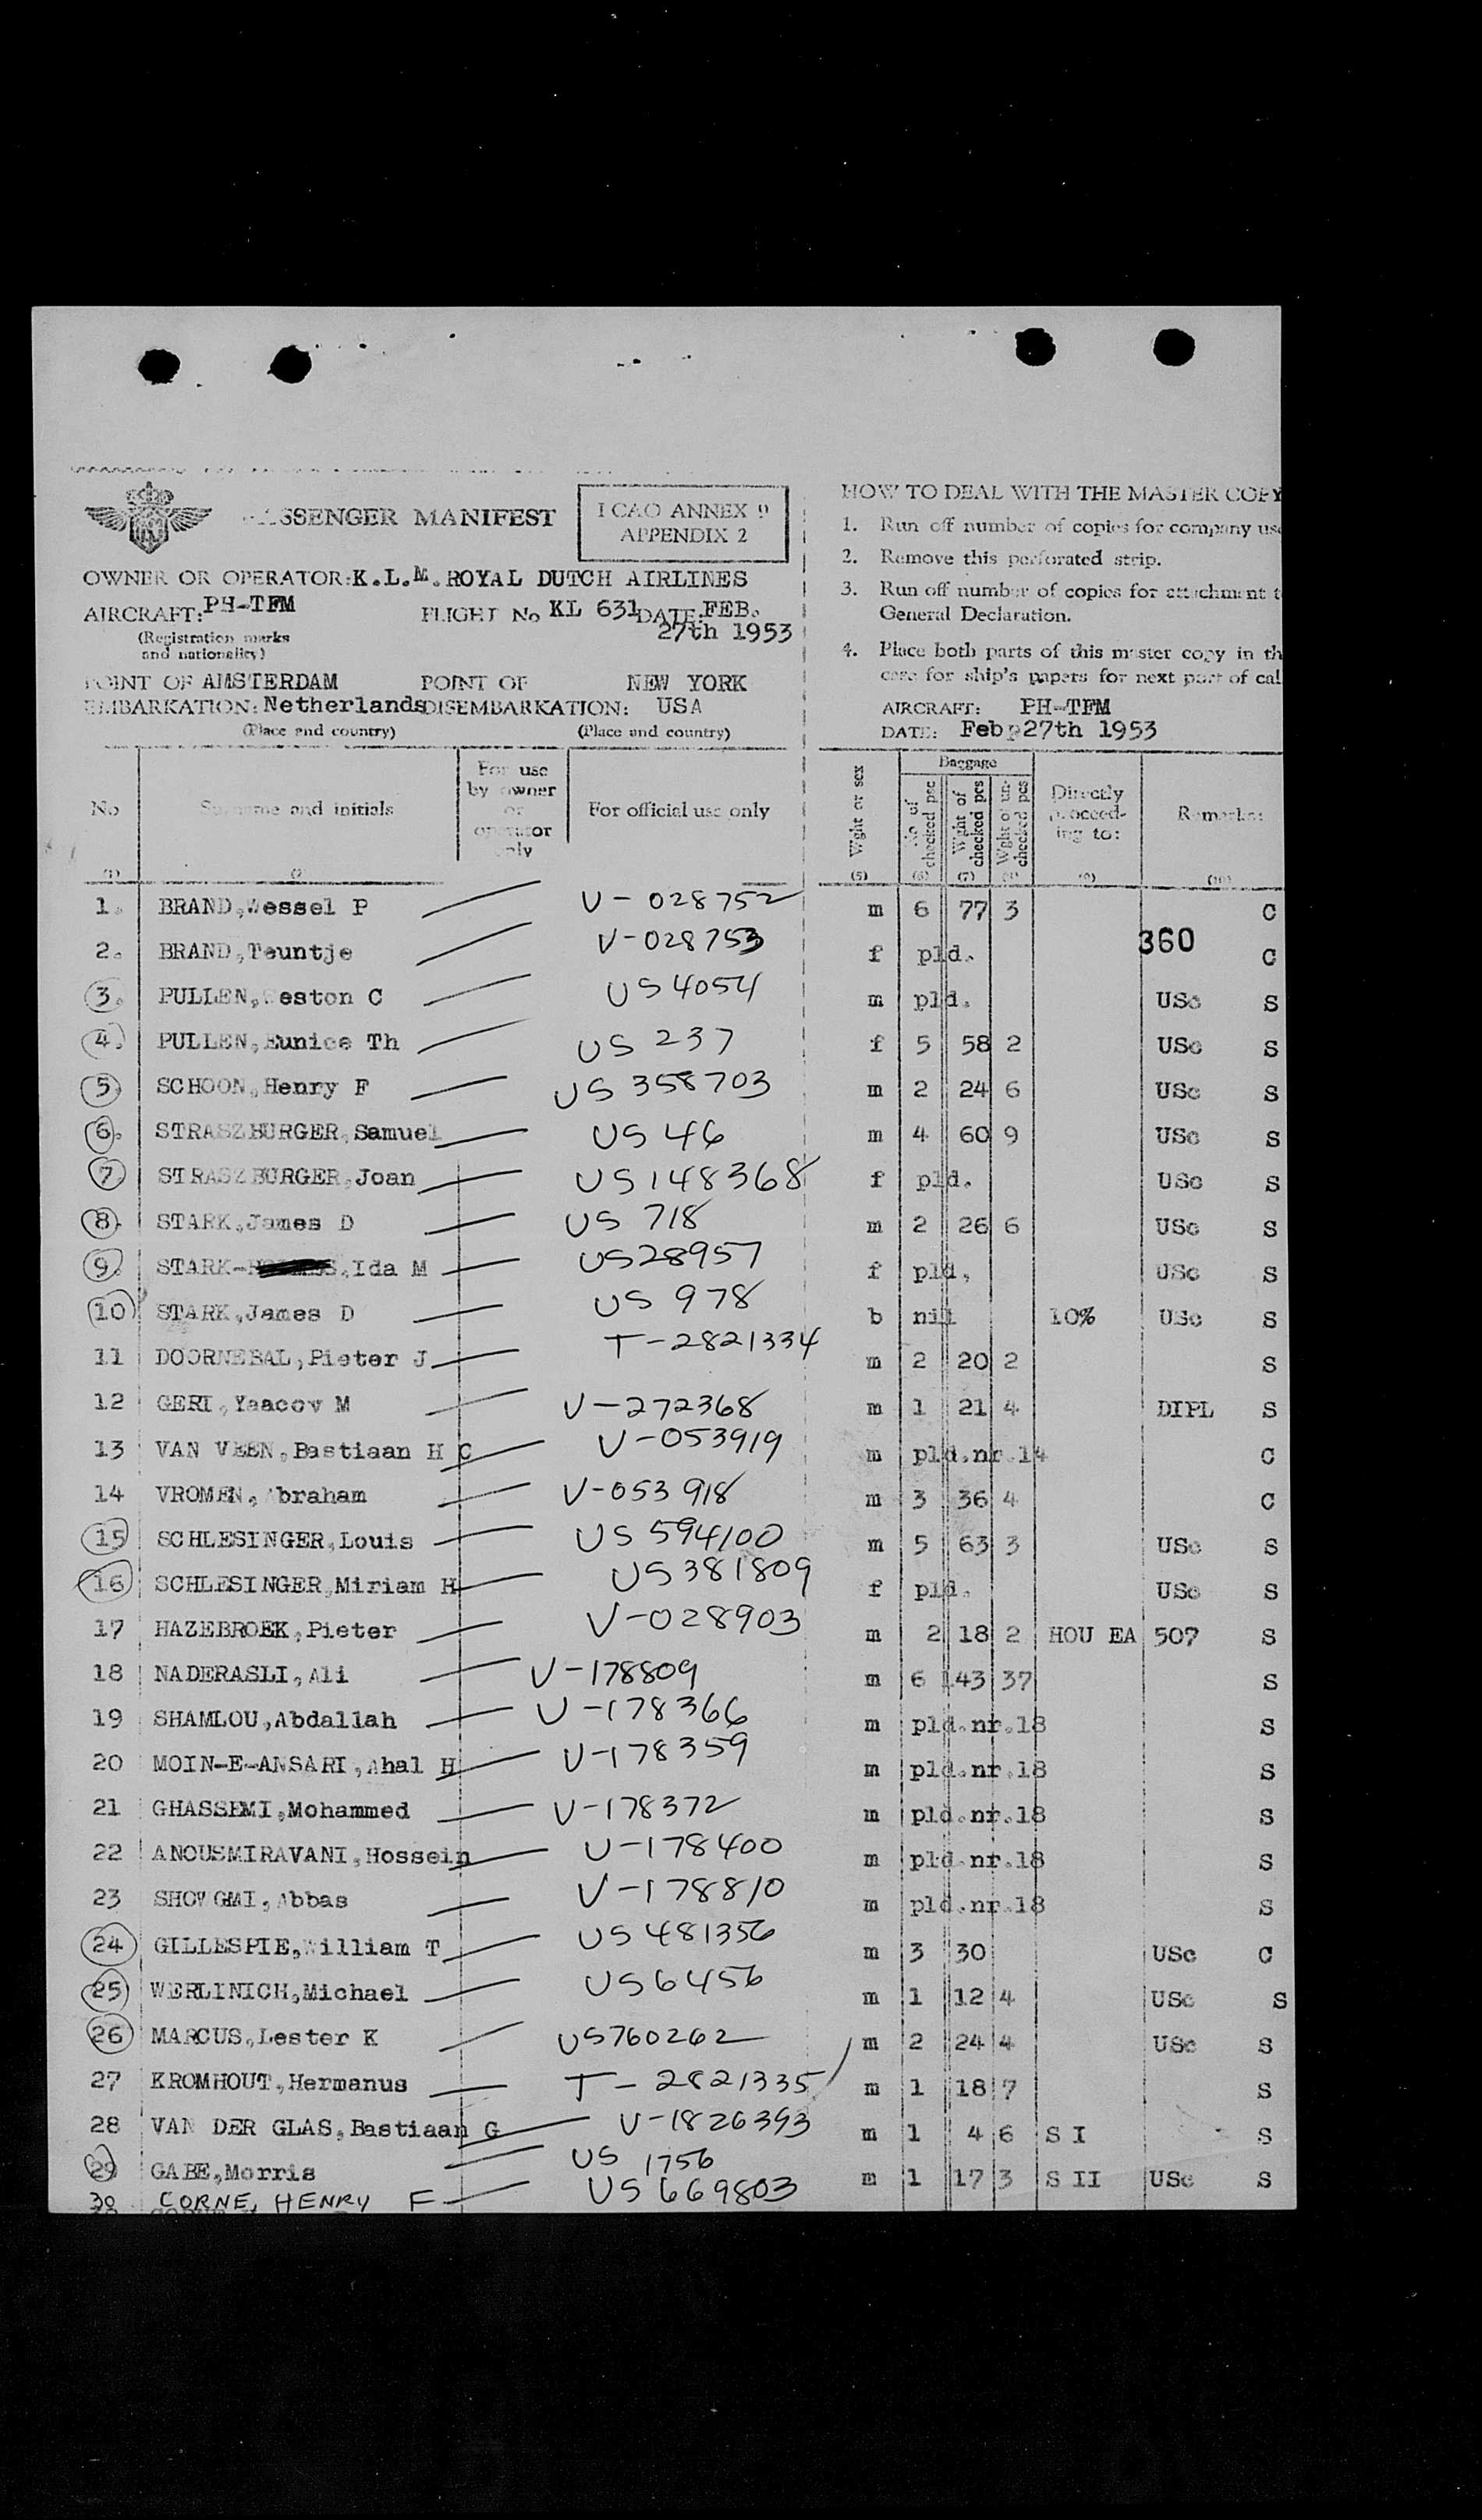 PASSENGER MANIFEST
ICAO ANNEX 9
APPENDIX 2
OWNER OR OPERATOR: K.L.M. ROYAL DUTCH AIRLINES
AIRCRAFT: PH-TFM FLIGHT No KL 631 DATE: FEB. 27th 1953
(Registration marks
and nationality)
POINT OF EMBARKATION: AMSTERDAM Netherlands POINT OF DISEMBARKATION: NEW YORK USA
(Place and country) (Place and country)
HOW TO DEAL WITH THE MASTER COPY
1. Run off number of copies for company use
2. Remove this perforated strip.
3. Run off number of copies for attachment t
General Declaration.
4. Place both parts of this master copy in th
case for ship's papers for next port of cal
AIRCRAFT: PH-TFM
DATE: Feb 27th 1953
No Surname and initials For use by owner or operator only For official use only Wght or sex Baggage No of checked pcs Wght of checked pcs Wght of un-checked pcs Directly proceed-ing to: Remarks:
(1) (2) (5) (6) (7) (8) (9) (10)
1. BRAND, Wessel P V-028752 m 6 77 3 C
360
2. BRAND, Teuntje V-028753 f pld. C
3. PULLEN, Weston C US 4054 m pld. USc S
4. PULLEN, Eunice Th US 237 f 5 58 2 USc S
5. SCHOON, Henry F US 358703 m 2 24 6 USc S
6. STRASZBURGER, Samuel US 46 m 4 60 9 USc S
7 STRASZBURGER, Joan US 148368 f pld. USc S
8. STARK, James D US 718 m 2 26 6 USc S
9. STARK- , Ida M US 28957 f pld, USc S
10 STARK, James D US 978 b nil 10% USc S
11 DOORNEBAL, Pieter J T-2821334 m 2 20 2 S
12 GERI, Yaacov M V-272368 m 1 21 4 DIPL S
13 VAN VEEN, Bastiaan H C V-053919 m pld.nr.14 C
14 VROMEN, Abraham V-053918 m 3 36 4 C
15 SCHLESINGER, Louis US 594100 m 5 63 3 USc S
16 SCHLESINGER, Miriam H US 381809 f pld. USc S
17 HAZEBROEK, Pieter V-028903 m 2 18 2 HOU EA 507 S
18 NADERASLI, Ali V-178809 m 6 143 37 S
19 SHAMLOU, Abdallah V-178366 m pld.nr.18 S
20 MOIN-E-ANSARI, Ahal H V-178359 m pld.nr.18 S
21 GHASSEMI, Mohammed V-178372 m pld.nr.18 S
22 ANOUSMIRAVANI, Hossein V-178400 m pld.nr.18 S
23 Abbas V-178810 m pld.nr.18 S
24 GILLESPIE, William T US 481356 m 3 30 USc C
25 WERLINICH, Michael US 6456 m 1 12 4 USc S
26 MARCUS, Lester K US 760262 m 2 24 4 USc S
27 KROMHOUT, Hermanus T-2821335 m 1 18 7 S
28 VAN DER GLAS, Bastiaan G V-1826393 m 1 4 6 S I S
29 GABE, Morris US 1756 m 1 17 3 S II USc S
30 CORNE, HENRY F US 669803